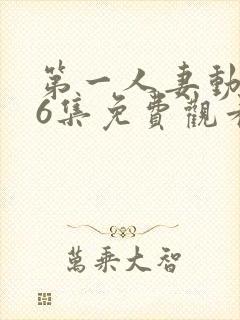 第一人妻動
6集免費觀看
萬乘大智